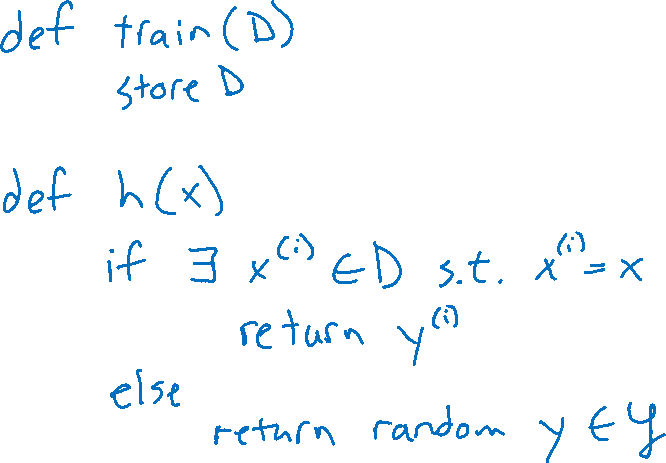 def train(D)
store D
def h(x)
if ∃ x^(i) ∈ D s.t. x^(i) = x
return y^(i)
else
return random y ∈ 𝒴